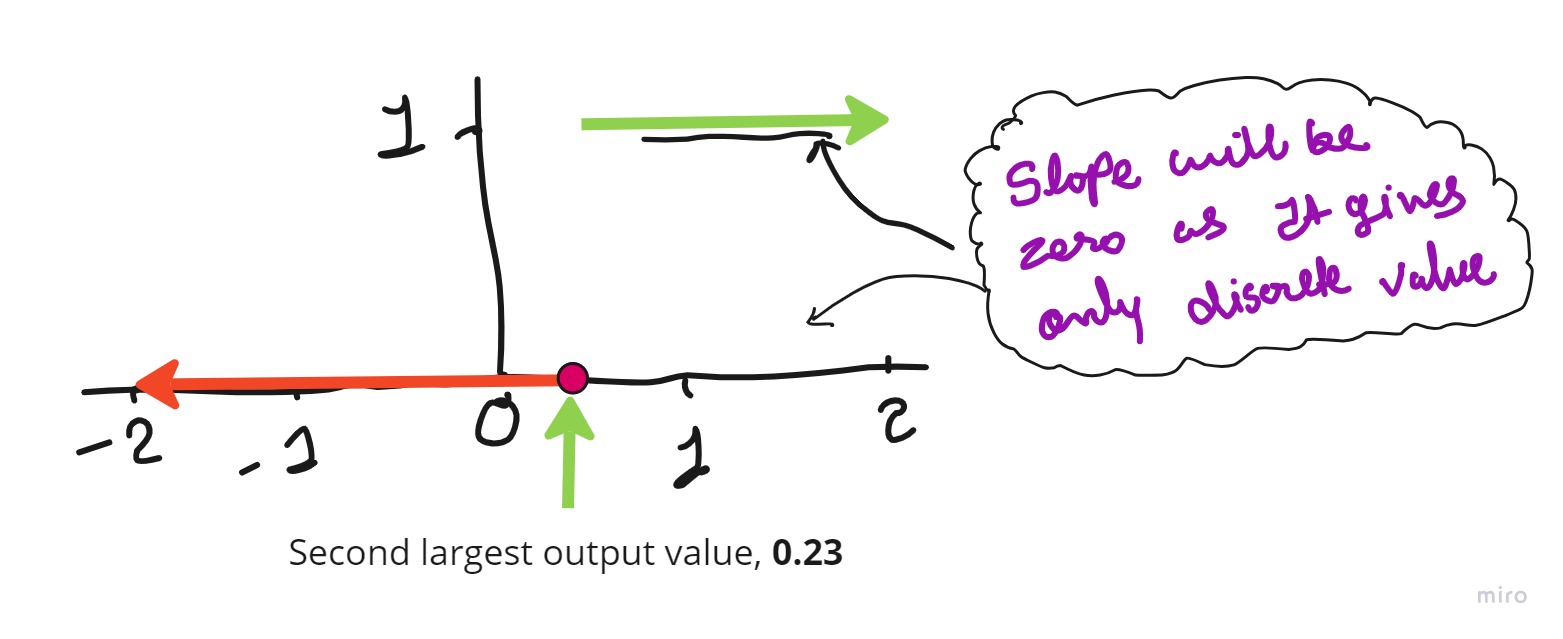 1
Slope will be
zero as It gives
only discrete value
-2
-1
0
1
2
Second largest output value, 0.23
miro